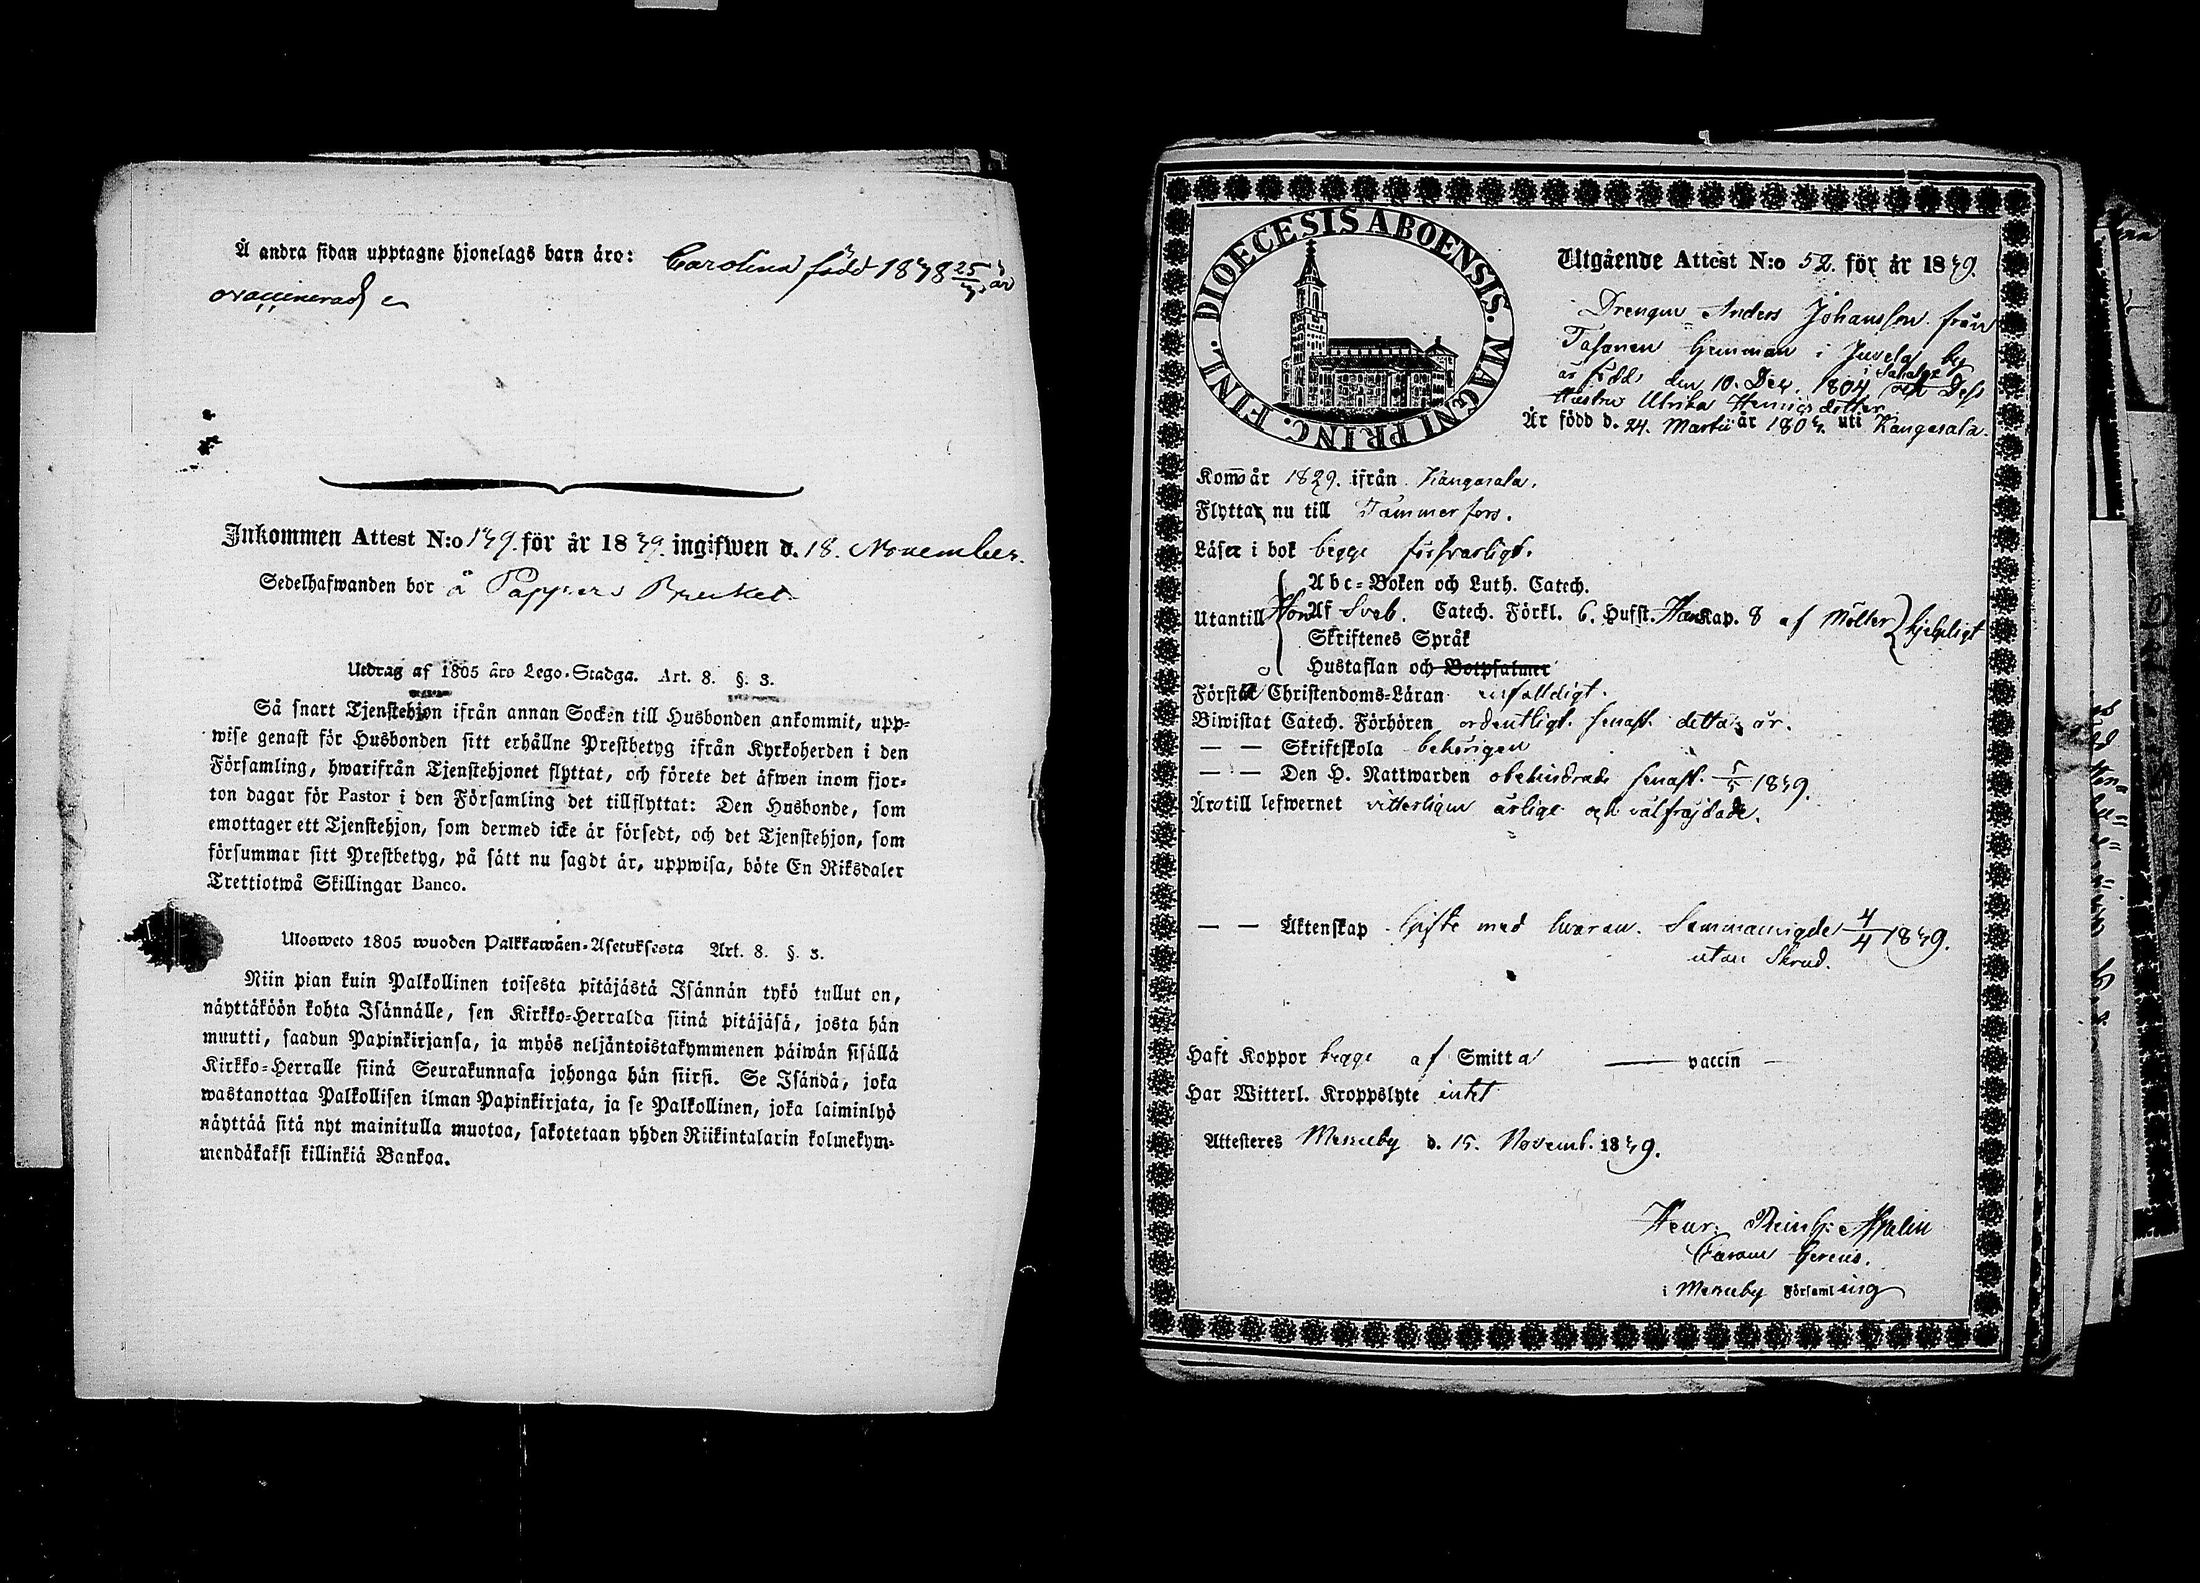 Å andra sidan upptagne hjonelags barn äro: Carolina född 1838 25/3
ovaccinerad
Inkommen Attest N:o 139. för år 1839. ingifwen d. 18. November.
Sedelhafwanden bor å Pappers Bruket.
Utdrag af 1805 års Lego-Stadga. Art. 8. §. 3.
Så snart Tjenstehjon ifrån annan Socken till Husbonden ankommit, upp-
wise genast för Husbonden sitt erhållne Prestbetyg ifrån Kyrkoherden i den
Församling, hwarifrån Tjenstehjonet flyttat, och förete det äfwen inom fjor-
ton dagar för Pastor i den Församling det tillflyttat: Den Husbonde, som
emottager ett Tjenstehjon, som dermed icke är försedt, och det Tjenstehjon, som
försummar sitt Prestbetyg, på sätt nu sagdt är, uppwisa, böte En Riksdaler
Trettiotwå Skillingar Banco.
Ulosweto 1805 wuoden Palkkawäen-Asetuksesta Art. 8. §. 3.
Niin pian kuin Palkollinen toisesta pitäjästä Isännän tykö tullut on,
näyttäköön kohta Isännälle, sen Kirkko-Herralda siinä pitäjäsä, josta hän
muutti, saadun Papinkirjansa, ja myös neljäntoistakymmenen päiwän sisällä
Kirkko-Herralle siinä Seurakunnasa johonga hän siirsi. Se Isändä, joka
wastanottaa Palkollisen ilman Papinkirjata, ja se Palkollinen, joka laiminlyö
näyttää sitä nyt mainitulla muotoa, sakotetaan yhden Riikintalarin kolmekym-
mendäkaksi killinkiä Bankoa.
DIOECESIS ABOENSIS. MAGNI PRINC. FINL.
Utgående Attest N:o 52. för år 1839.
Drengen Anders Johansson från
Hemman i Juvela by
är född den 10. Dec. 1804 i Sahalax och Dess
Hustru Ulrika Henricsdotter
Är född d. 24. Martii år 1803. uti Kangasala.
Kom år 1829. ifrån Kangasala.
Flyttar nu till Tammerfors.
Läser i bok begge försvarligt.
Abc-Boken och Luth. Catech.
Utantill Hon Af Sveb. Catech. Förkl. 6. Hufst. Han Kap. 8 af Möller hjelpligt
Skriftenes Språk
Hustaflan och Botpsalmer
Förstå Christendoms-Läran enfaldigt.
Biwistat Catech. Förhören ordentligt senast detta år.
— — Skriftskola behörigen
— — Den H. Nattwarden obehindrade senast 5/5 1839.
Äro till lefwernet vitterligen ärlige och välfräjdade.
— — Äktenskap Gifte med hvaran. Sammanvigde 4/4 1839.
utan Skrud.
Haft Koppor begge af Smitta — vaccin —
Har Witterl. Kroppslyte intet
Attesteres Messuby d. 15. Novemb. 1839.
Henr. Reinh: Malin
Curam Gerens.
i Messuby Församling